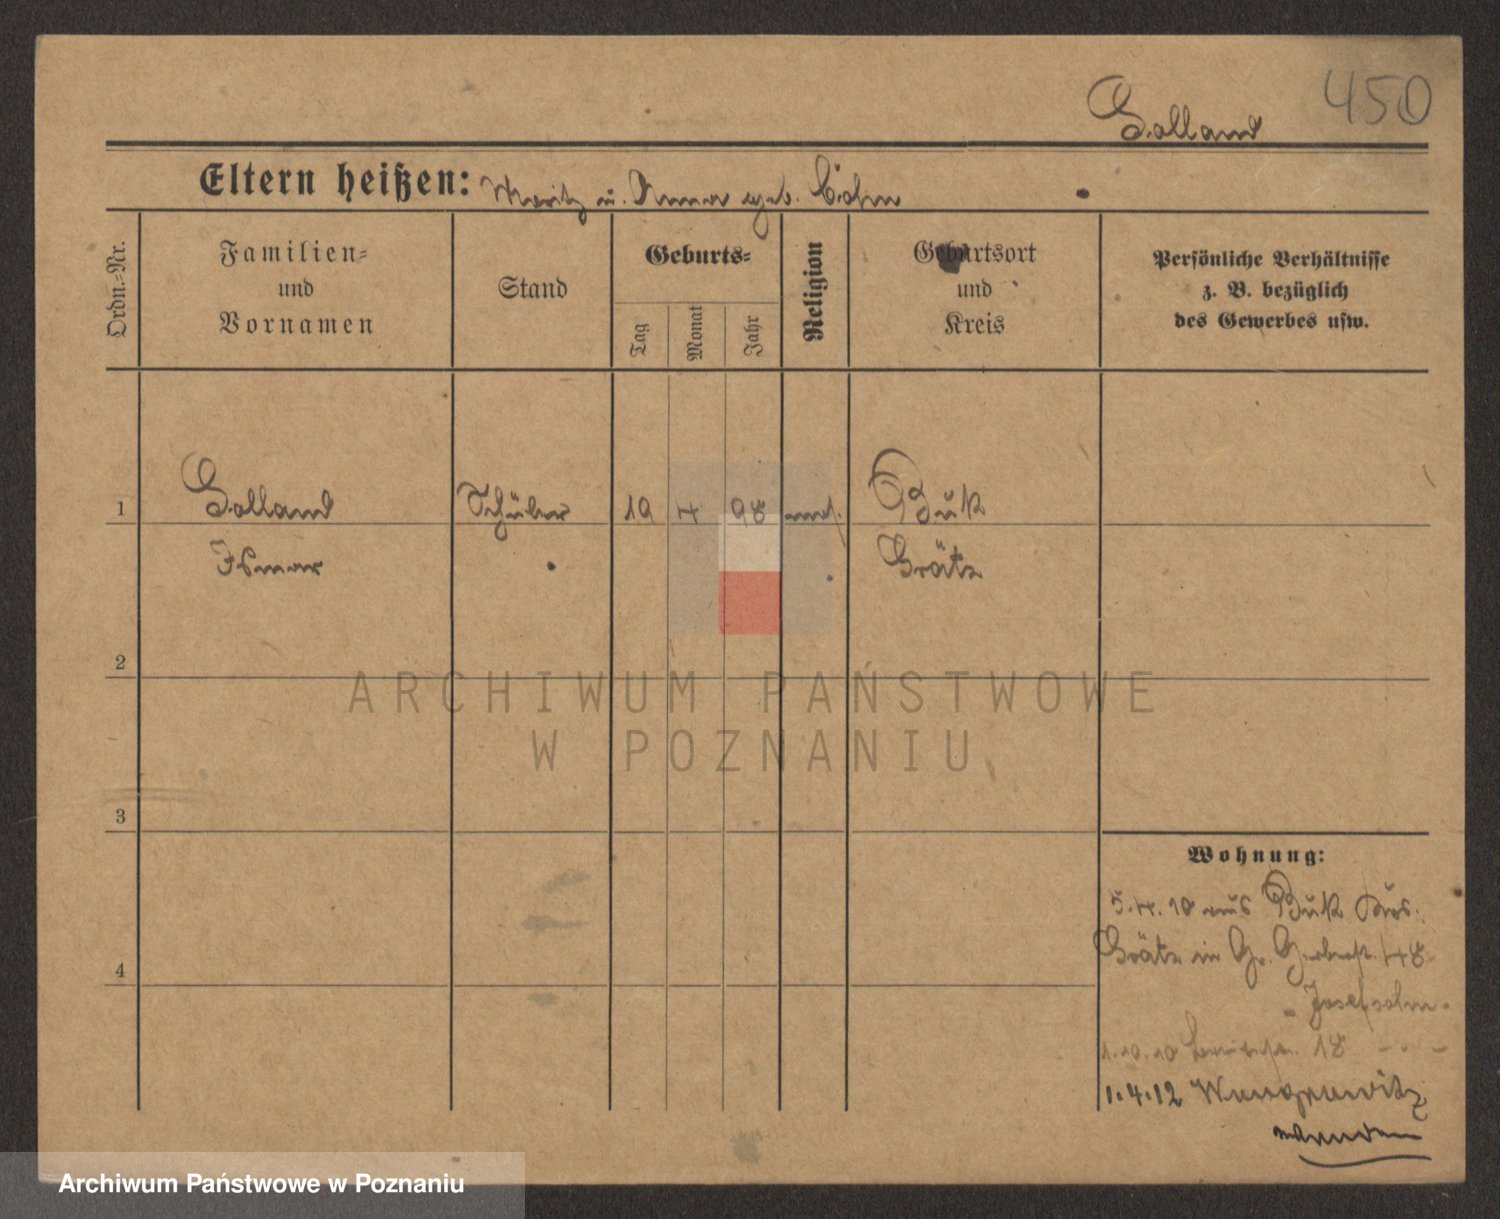 450
Holland
Eltern heißen: Moritz u. Anna geb. Cohn
Ordn.-Nr.
Familien-
und
Vornamen
Stand
Geburts-
Tag
Monat
Jahr
Religion
Geburtsort
und
Kreis
Persönliche Verhältnisse
z. B. bezüglich
des Gewerbes usw.
1
Holland
Ismar
Schüler
19
4
98
mos.
Buk
Grätz
2
ARCHIWUM PAŃSTWOWE
W POZNANIU
3
4
Wohnung:
5.4.10 aus Buk Krs.
Grätz in Gr. Gerberst. 48
Josefsohn
1.10.10 18
1.4.12 Wongrowitz
Archiwum Państwowe w Poznaniu